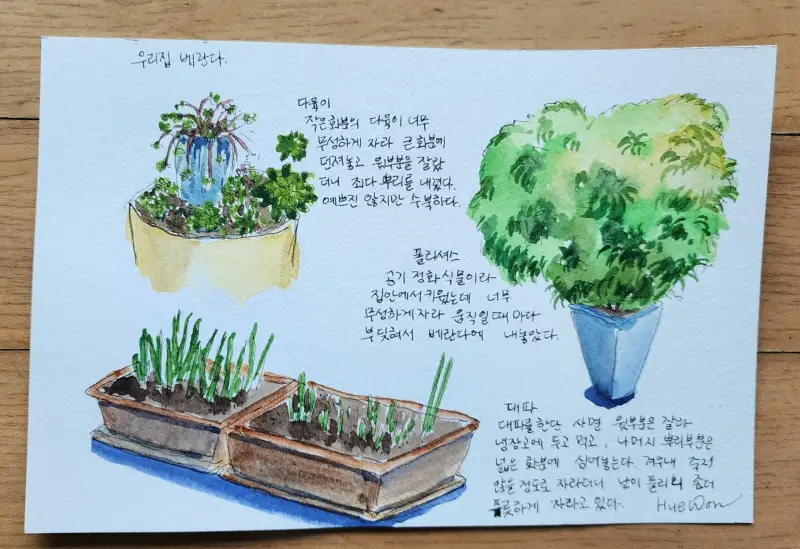 우리집 베란다.
다육이
작은화분의 다육이 너무
무성하게 자라 큰화분에
던져놓고 윗부분을 잘랐
더니 죄다 뿌리를 내렸다.
예쁘진 않지만 수북하다.
폴리셔스
공기 정화식물이라
집안에서 키웠는데 너무
무성하게 자라 움직일때마다
부딪혀서 베란다에 내놓았다.
대파
대파를 한단 사면 윗부분은 잘라
냉장고에 두고 먹고, 나머지 뿌리부분은
넓은 화분에 심어놓는다. 겨우내 죽지
않을 정도로 자라더니 날이 풀리니 좀더
꼿꼿하게 자라고 있다.
HueWon